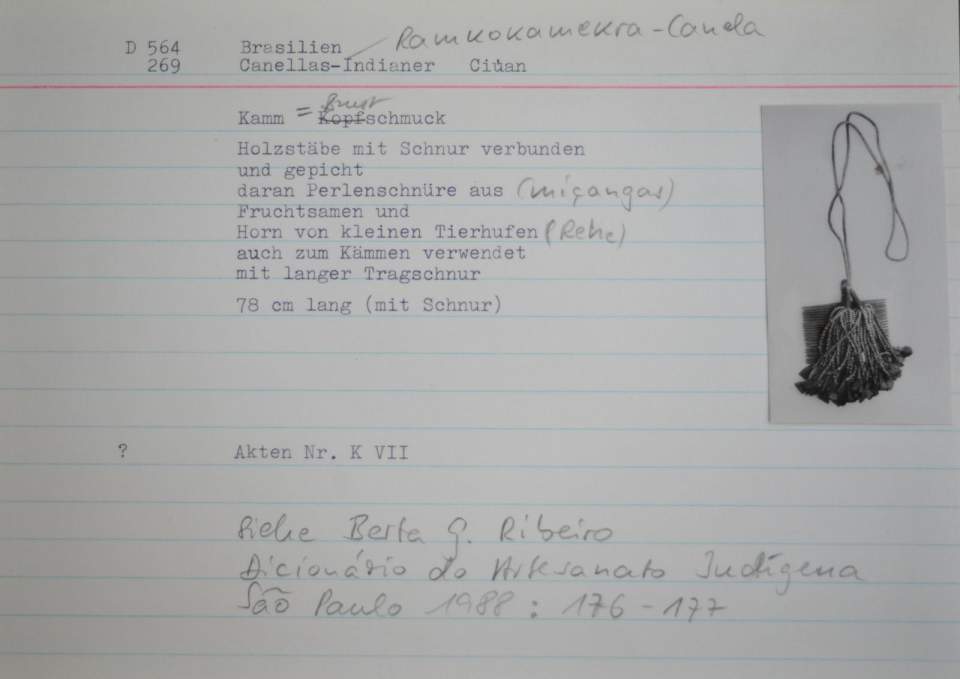 D 564 Brasilien Ramkokamekra-Canela
269 Canellas-Indianer Ciuan
Brust
Kamm = Kopfschmuck
Holzstäbe mit Schnur verbunden
und gepicht
daran Perlenschnüre aus (miçangas)
Fruchtsamen und
Horn von kleinen Tierhufen (Rehe)
auch zum Kämmen verwendet
mit langer Tragschnur
78 cm lang (mit Schnur)
? Akten Nr. K VII
Siehe Berta G. Ribeiro
Dicionário do Artesanato Indígena
São Paulo 1988 : 176-177